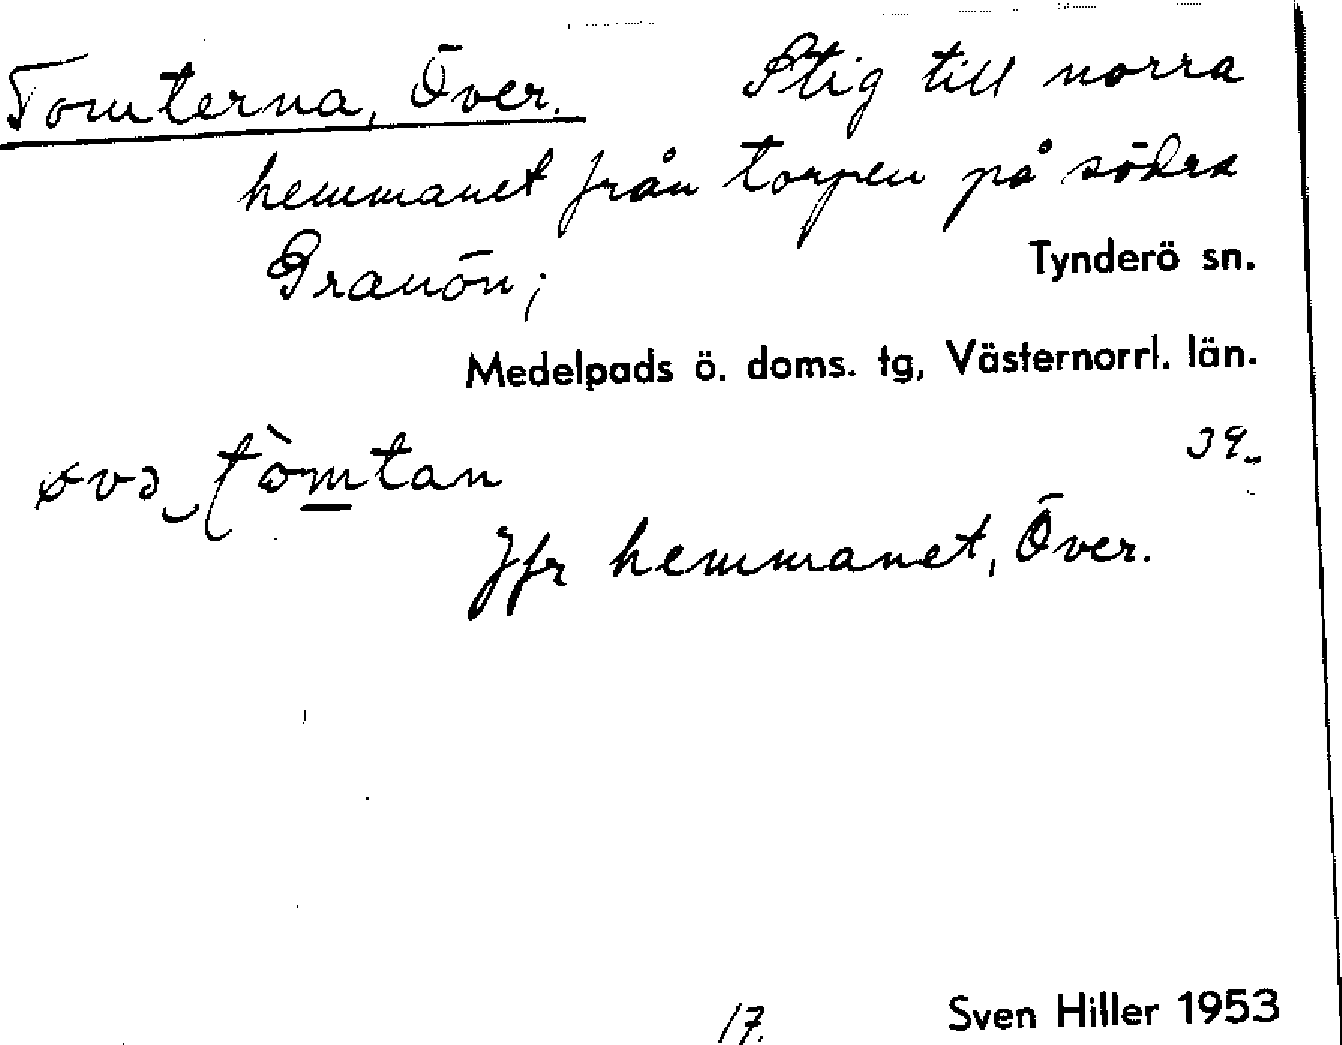 Tomterna, Över. Stig till norra
hemmanet från torpen på södra
Granön;
Tynderö sn.
Medelpads ö. doms. tg, Västernorrl. län.
39.
øvə tòmtan
Jfr hemmanet, Över.
17. Sven Hiller 1953